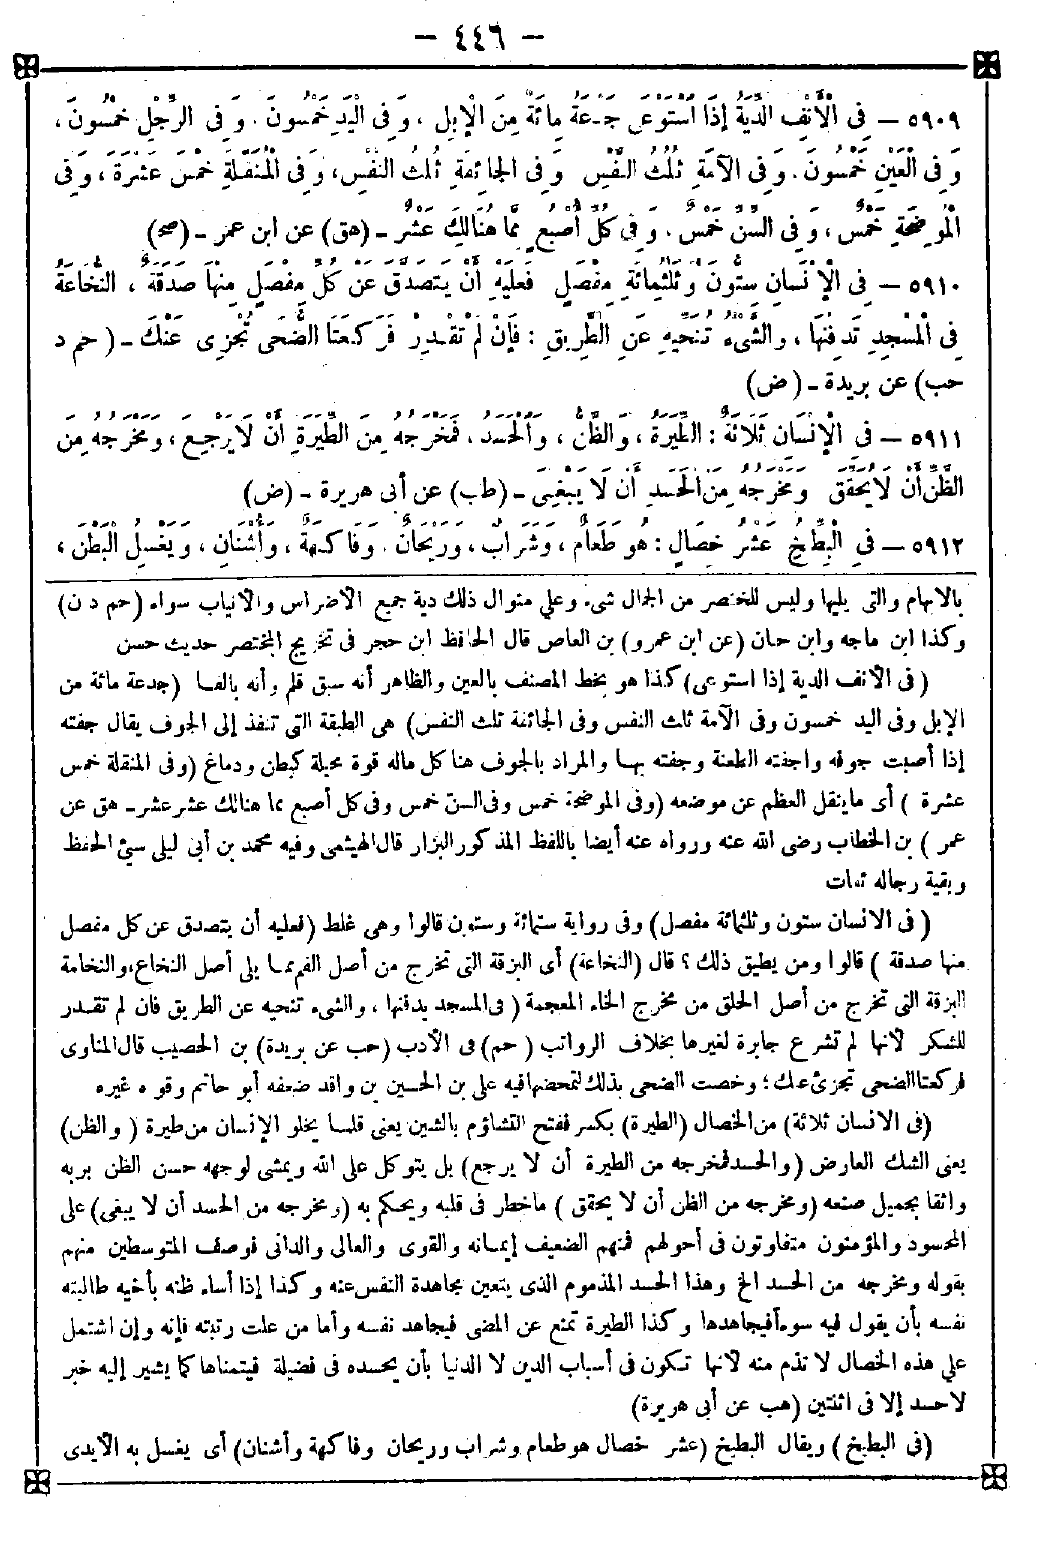 — ٤٤٦ —
٥٩٠٩ — فِى الْأَنْفِ الدِّيَةُ إِذَا اسْتَوْعَى جَدْعَةَ مِائَةٌ مِنَ الْإِبِلِ ، وَفِى الْيَدِ خَمْسُونَ . وَفِى الرِّجْلِ خَمْسُونَ ،
وَفِى الْعَيْنِ خَمْسُونَ . وَفِى الْآمَّةِ ثُلُثُ النَّفْسِ وَفِى الْجَائِفَةِ ثُلُثُ النَّفْسِ ، وَفِى الْمُنَقِّلَةِ خَمْسَ عَشْرَةَ ، وَفِى
الْمُوضِحَةِ خَمْسٌ ، وَفِى السِّنِّ خَمْسٌ . وَفِى كُلِّ أُصْبُعٍ مِمَّا هُنَالِكَ عَشْرٌ ـ (هق) عن ابن عمر ـ (صح)
٥٩١٠ — فِى الْإِنْسَانِ سِتُّونَ وَثَلَثُمِائَةِ مِفْصَلٍ فَعَلَيْهِ أَنْ يَتَصَدَّقَ عَنْ كُلِّ مِفْصَلٍ مِنْهَا صَدَقَةً ، النُّخَاعَةُ
فِى الْمَسْجِدِ تَدْفِنُهَا ، وَالشَّىْءُ تُنَحِّيهِ عَنِ الطَّرِيقِ : فَإِنْ لَمْ تَقْدِرْ فَرَكْعَتَا الضُّحَى تُجْزِى عَنْكَ ـ ( حم د
حب) عن بريدة ـ (ض)
٥٩١١ — فِى الْإِنْسَانِ ثَلَاثَةٌ : الطِّيَرَةُ ، وَالظَّنُّ ، وَالْحَسَدُ ، فَمَخْرَجُهُ مِنَ الطِّيَرَةِ أَنْ لَا يَرْجِعَ ، وَمَخْرَجُهُ مِنَ
الظَّنِّ أَنْ لَا يُحَقِّقَ وَمَخْرَجُهُ مِنَ الْحَسَدِ أَنْ لَا يَبْغِىَ ـ (طب) عن أبى هريرة ـ (ض)
٥٩١٢ — فِى الْبِطِّيخِ عَشْرُ خِصَالٍ : هُوَ طَعَامٌ ، وَشَرَابٌ ، وَرَيْحَانٌ . وَفَاكِهَةٌ ، وَأُشْنَانٌ ، وَيَغْسِلُ الْبَطْنَ ،
بالابهام والتى يليها وليس للخنصر من الجمال شىء وعلى منوال ذلك دية جميع الأضراس والأنياب سواء (حم د ن)
وكذا ابن ماجه وابن حبان (عن ابن عمرو) بن العاص قال الحافظ ابن حجر فى تخريج المختصر حديث حسن
(فى الأنف الدية إذا استوعى) كذا هو بخط المصنف بالعين والظاهر أنه سبق قلم وأنه بالفا (جدعة مائة من
الإبل وفى اليد خمسون وفى الآمة ثلث النفس وفى الجائفة ثلث النفس) هى الطبقة التى تنفذ إلى الجوف يقال جفته
إذا أصبت جوفه واجفته الطعنة وجفته بها والمراد بالجوف هنا كل ماله قوة محيلة كبطن ودماغ (وفى المنقلة خمس
عشرة ) أى ما ينقل العظم عن موضعه (وفى الموضحة خمس وفى السن خمس وفى كل أصبع مما هنالك عشر عشر ـ هق عن
عمر ) بن الخطاب رضى الله عنه ورواه عنه أيضا باللفظ المذكور البزار قال الهيثمى وفيه محمد بن أبى ليلى سيئ الحفظ
وبقية رجاله ثقات
(فى الانسان ستون وثلثمائة مفصل) وفى رواية ستمائة وستون قالوا وهى غلط (فعليه أن يتصدق عن كل مفصل
منها صدقة ) قالوا ومن يطيق ذلك ؟ قال (النخاعة) أى البزقة التى تخرج من أصل الفم مما يلى أصل النخاع ، والنخامة
البزقة التى تخرج من أصل الحلق من مخرج الخاء المعجمة ( فى المسجد يدفنها ، والشىء تنحيه عن الطريق فان لم تقدر
للشكر لأنها لم تشرع جابرة لغيرها بخلاف الرواتب ( حم) فى الأدب (حب عن بريدة) بن الحصيب قال المناوى
فركعتا الضحى تجزئ عنك ؛ وخصت الضحى بذلك لتمحضها فيه على بن الحسين بن واقد ضعفه أبو حاتم وقوه غيره
(فى الانسان ثلاثة) من الخصال (الطيرة) بكسر ففتح التشاؤم بالشين يعنى قلما يخلو الإنسان من طيرة ( والظن)
يعنى الشك العارض (والحسد فمخرجه من الطيرة أن لا يرجع) بل يتوكل على الله ويمشى لوجهه حسن الظن بربه
واثقا بجميل صنعه (ومخرجه من الظن أن لا يحقق ) ماخطر فى قلبه ويحكم به (ومخرجه من الحسد أن لا يبغى) على
المحسود والمؤمنون متفاوتون فى أحولهم فمنهم الضعيف إيمانه والقوى والعالى والدانى فوصف المتوسطين منهم
بقوله ومخرجه من الحسد الخ وهذا الحسد المذموم الذى يتعين مجاهدة النفس عنه وكذا إذا أساء ظنه بأخيه طالبته
نفسه بأن يقول فيه سوءا فيجاهدها وكذا الطيرة تمنع عن المضى فيجاهد نفسه وأما من علت رتبته فإنه وإن اشتمل
على هذه الخصال لا تذم منه لأنها تكون فى أسباب الدين لا الدنيا بأن يحسده فى فضيلة فيتمناها كما يشير إليه خبر
لاحسد إلا فى اثنتين (هب عن أبى هريرة)
(فى البطيخ ) ويقال الطبيخ (عشر خصال هو طعام وشراب وريحان وفاكهة وأشنان) أى يغسل به الأيدى